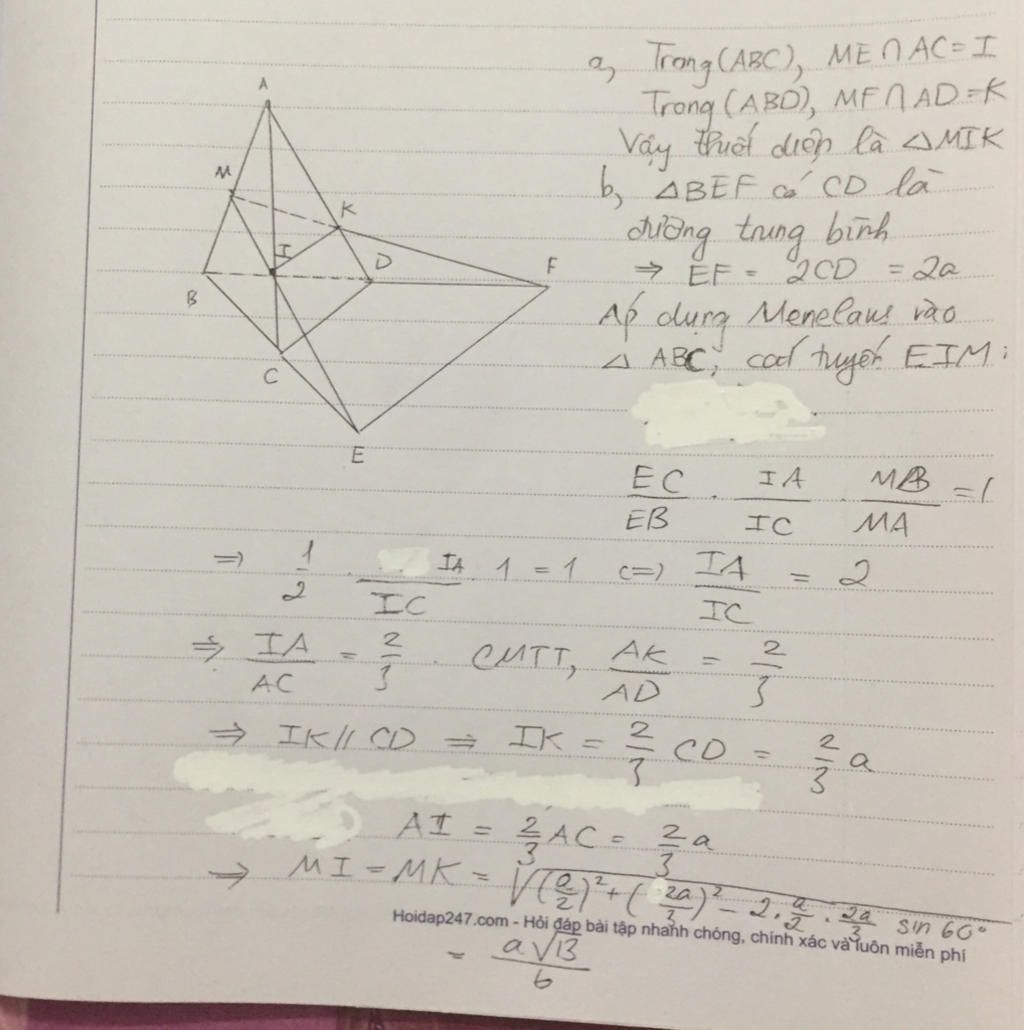 a, Trong (ABC), ME ∩ AC = I
Trong (ABD), MF ∩ AD = K
Vậy thiết diện là △MIK
b, △BEF có CD là
đường trung bình
⇒ EF = 2CD = 2a
Áp dụng Menelaus vào
△ ABC, cát tuyến EIM:
A
M
K
I
D
F
B
C
E
EC/EB . IA/IC . MB/MA = 1
⇒ 1/2 . IA/IC . 1 = 1 <=> IA/IC = 2
⇒ IA/AC = 2/3 . CMTT, AK/AD = 2/3
⇒ IK // CD ⇒ IK = 2/3 CD = 2/3 a
AI = 2/3 AC = 2/3 a
⇒ MI = MK = √((a/2)² + (2a/3)² - 2 . a/2 . 2a/3 sin 60°)
Hoidap247.com - Hỏi đáp bài tập nhanh chóng, chính xác và luôn miễn phí
= a√13/6